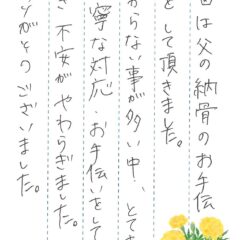 は父の納骨のお手伝
をして頂きました。
からない事が多い中、とて
寧な対応・お手伝いをして
き不安がやわらぎました。
りがとうございました。